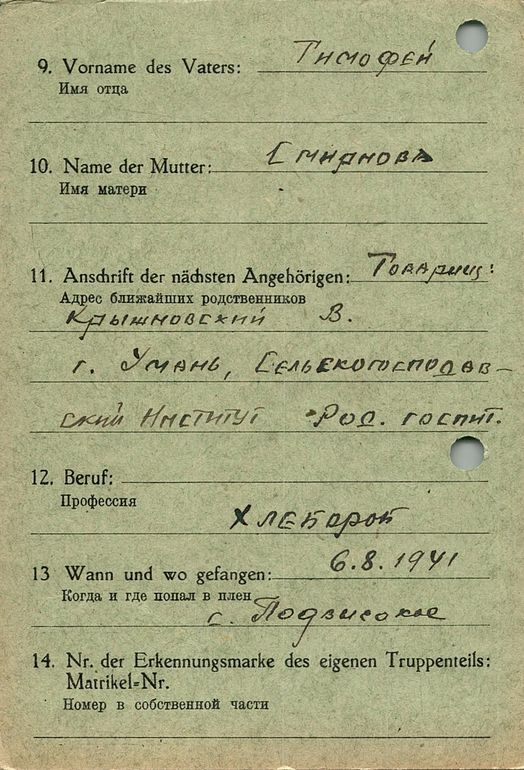 9. Vorname des Vaters: Тимофей
Имя отца
10. Name der Mutter: Смирнова
Имя матери
11. Anschrift der nächsten Angehörigen: Товарищ:
Адрес ближайших родственников
Крышновский В.
г. Умань, Сельскогосподар-
ский Институт Род. госпит.
12. Beruf:
Профессия
Хлебороб
13 Wann und wo gefangen: 6.8.1941
Когда и где попал в плен
с. Подвисокое
14. Nr. der Erkennungsmarke des eigenen Truppenteils:
Matrikel-Nr.
Номер в собственной части